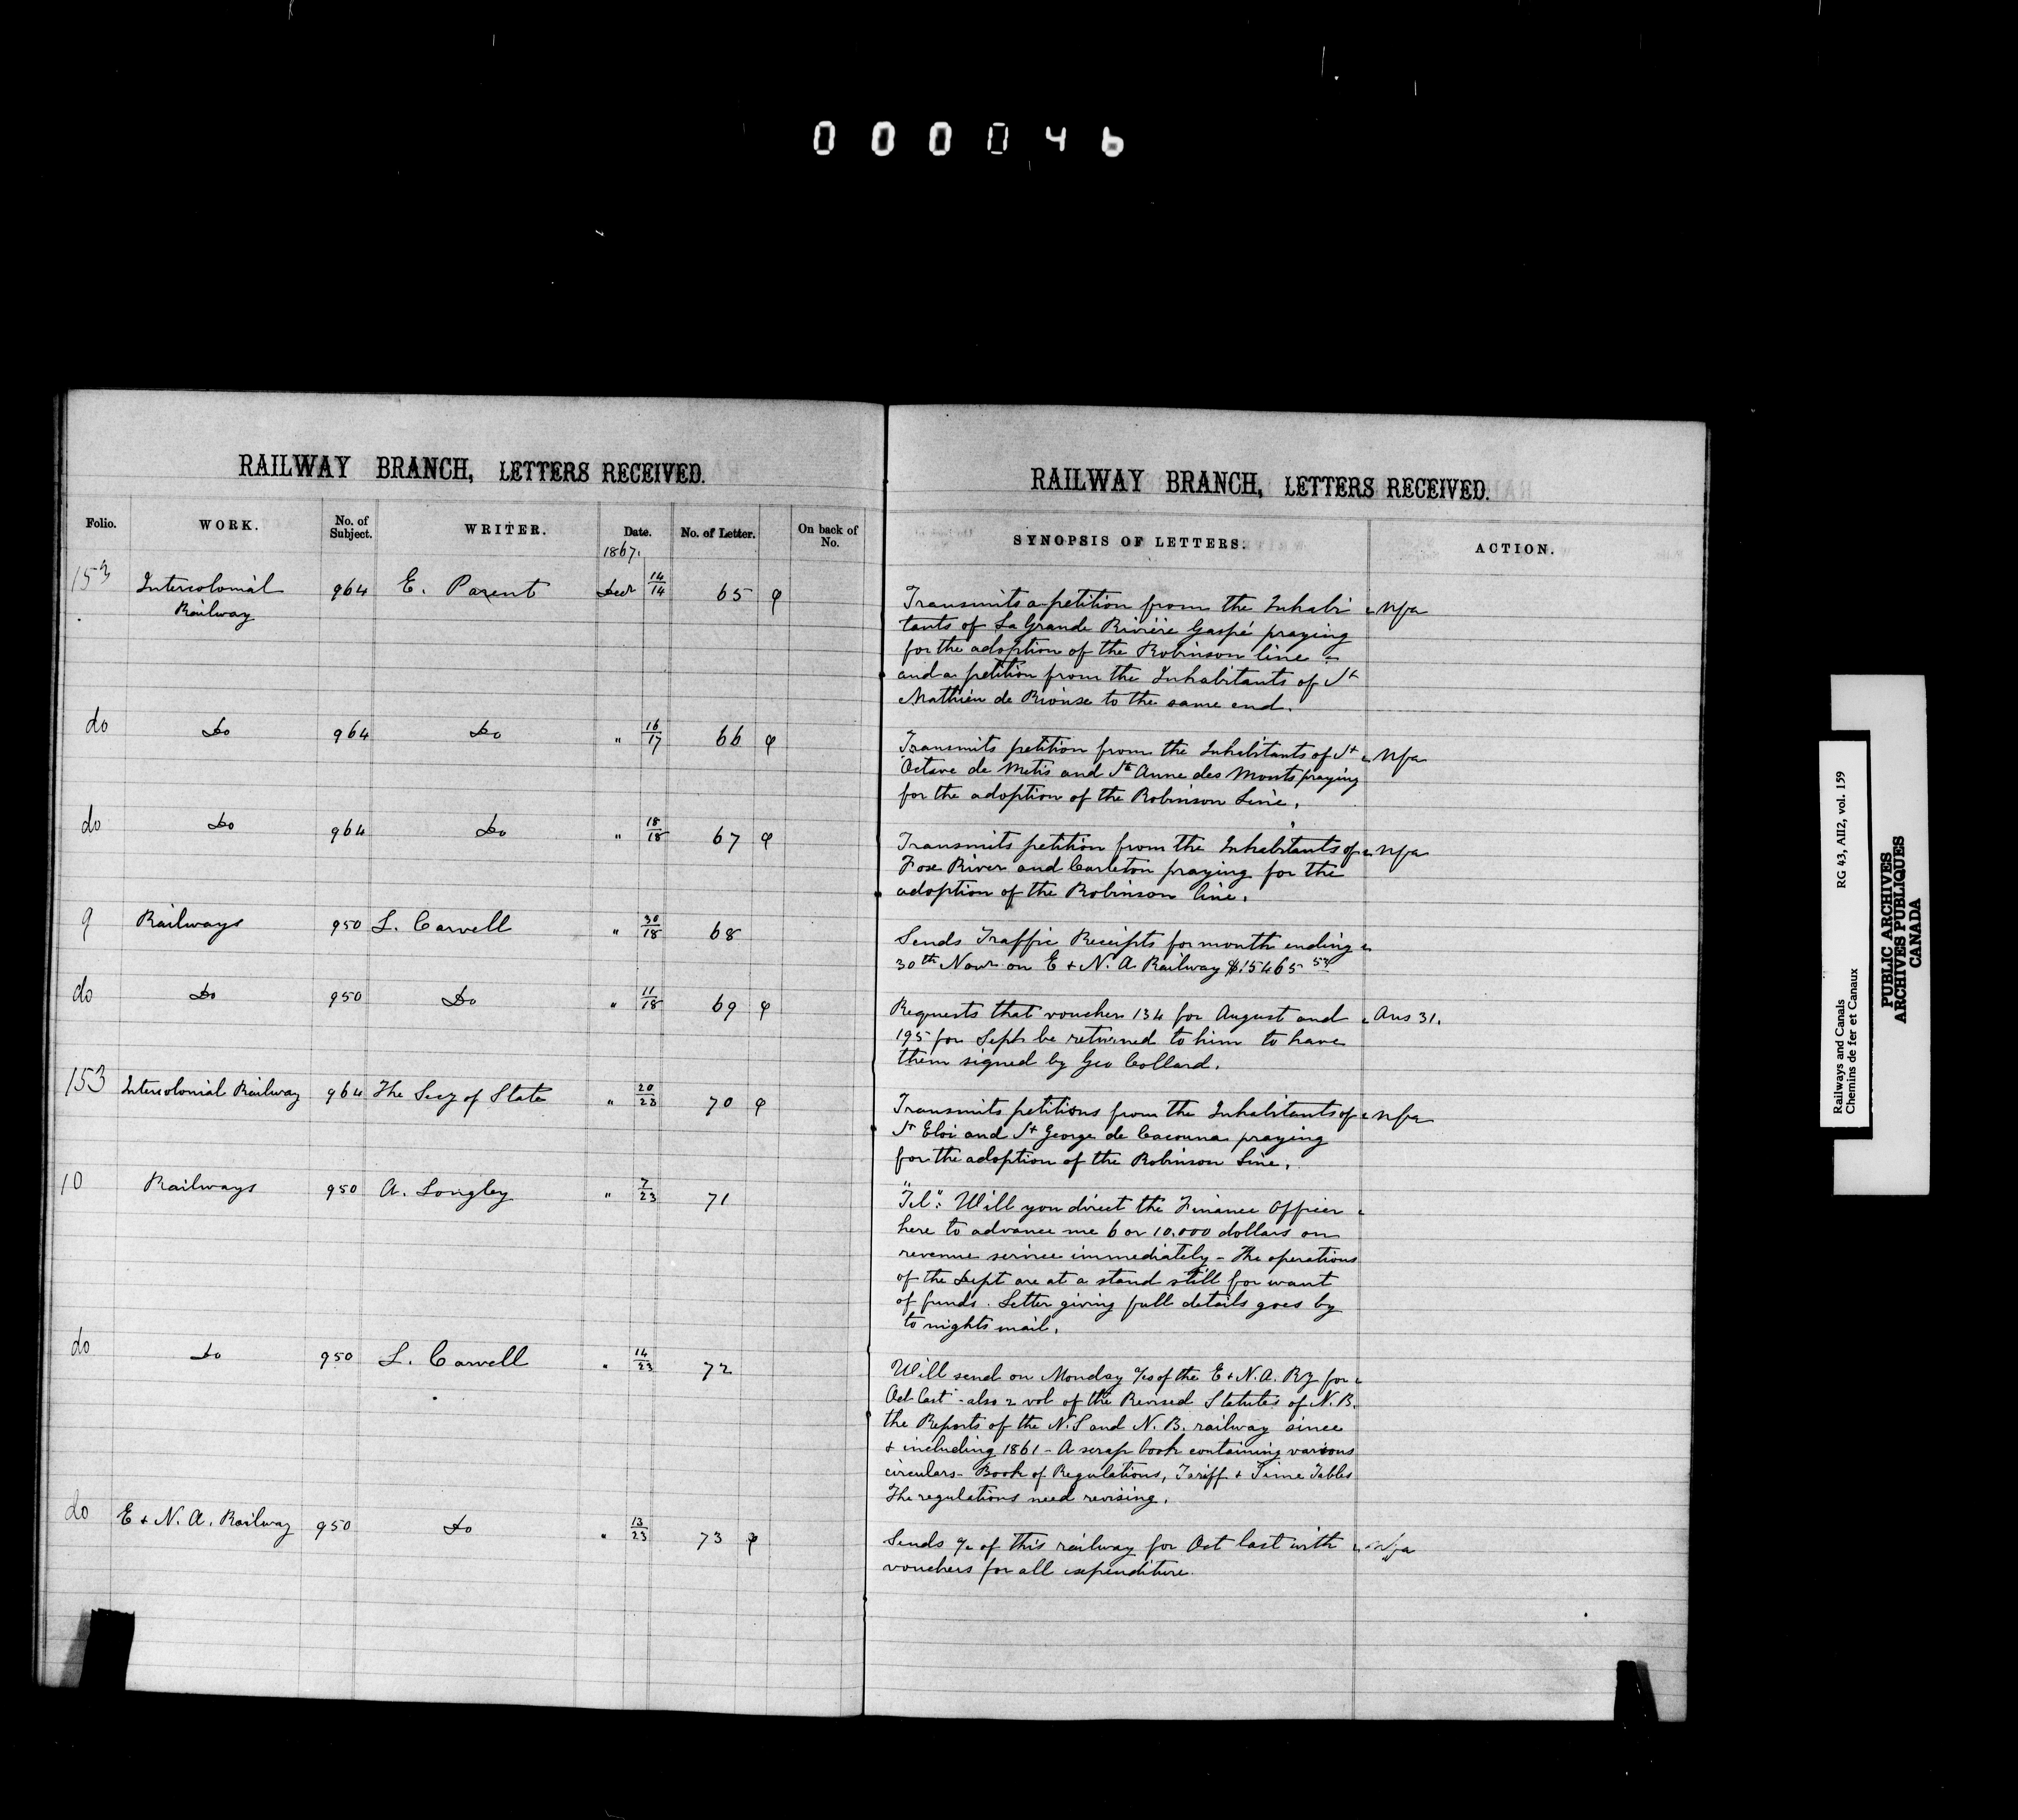 000046
RAILWAY BRANCH, LETTERS RECEIVED.
Folio. WORK. No. of Subject. WRITER. Date. No. of Letter. On back of No.
1867.
153 Intercolonial 964 E. Parent Decr 14/14 65 φ
Railway
do Do 964 Do " 16/17 66 φ
do Do 964 Do " 18/18 67 φ
9 Railways 950 L. Carvell " 30/18 68
do Do 950 Do " 11/18 69 φ
153 Intercolonial Railway 964 The Secy of State " 20/23 70 φ
10 Railways 950 A. Longley " 7/23 71
do Do 950 L. Carvell " 14/23 72
do E & N. A. Railway 950 Do " 13/23 73 φ
RAILWAY BRANCH, LETTERS RECEIVED.
SYNOPSIS OF LETTERS. ACTION.
Transmits a petition from the Inhabi Nfa
tants of La Grande Rivière Gaspé praying
for the adoption of the Robinson line -
and a petition from the Inhabitants of St
Mathieu de Rionse to the same end.
Transmits petition from the Inhabitants of St Nfa
Octave de Metis and Ste Anne des Monts praying
for the adoption of the Robinson Line.
Transmits petition from the Inhabitants of Nfa
Fox River and Carleton praying for the
adoption of the Robinson line.
Sends Traffic Receipts for month ending
30th Novr on E & N. A Railway $15465
Requests that voucher 134 for August and Ans 31.
195 for Sept be returned to him to have
them signed by Geo Collard.
Transmits petitions from the Inhabitants of Nfa
St Eloi and St George de Cacouna praying
for the adoption of the Robinson Line.
"Tel": Will you direct the Finance Officer
here to advance me 6 or 10.000 dollars on
revenue service immediately - The operations
of the Dept are at a stand still for want
of funds. Letter giving full details goes by
to nights mail.
Will send on Monday a/cs of the E & N. A. Ry for
Oct last - also 2 vol of the Revised Statutes of N. B.
the Reports of the N. S and N. B. railway since
& including 1861 - A scrap book containing various
circulars - Book of Regulations, Tariff & Time Tables
The regulations need revising.
Sends a/c of this railway for Oct last with Nfa
vouchers for all expenditure.
Railways and Canals RG 43, AII2, vol. 159
Chemins de fer et Canaux
PUBLIC ARCHIVES
ARCHIVES PUBLIQUES
CANADA